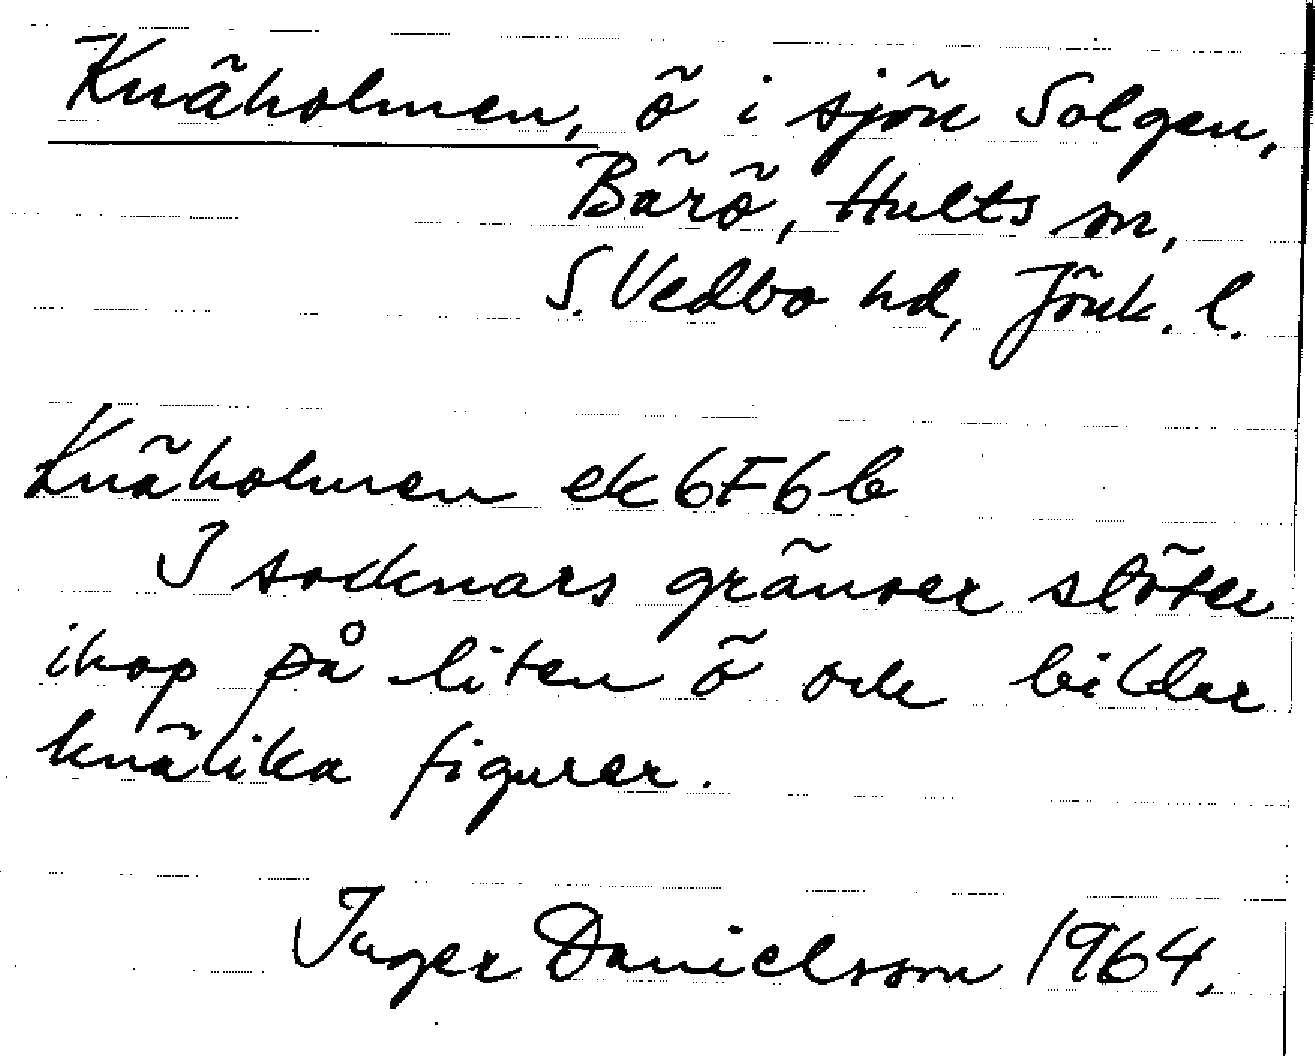 Knäholmen, ö i sjön Solgen,
Bärö, Hults sn,
S. Vedbo hd, Jönk. l.
Knäholmen ek 6F6b
I socknars gränser stöter
ihop på liten ö och bildar
knälika figurer.
Inger Danielsson 1964.